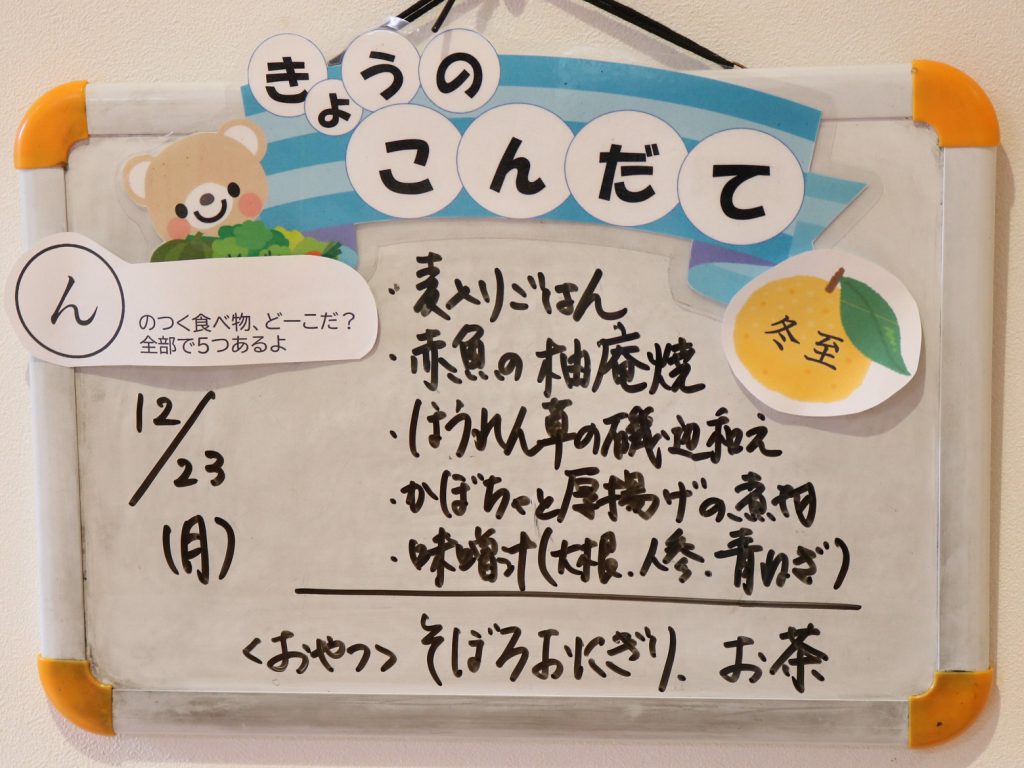 きょうの
こんだて
ん
のつく食べ物、どーこだ？
全部で5つあるよ
冬至
12/23
(月)
・麦入りごはん
・赤魚の柚庵焼
・ほうれん草の磯辺和え
・かぼちゃと厚揚げの煮物
・味噌汁(大根.人参.青ねぎ)
<おやつ> そぼろおにぎり. お茶